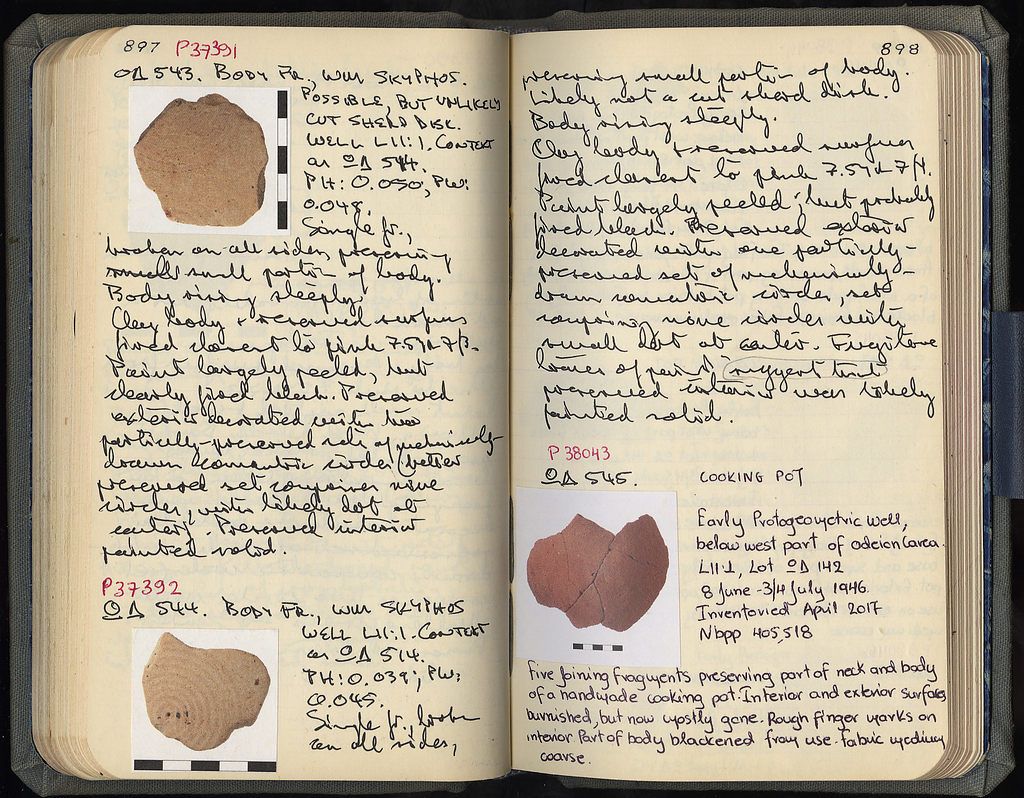 897 P37391
ΟΔ 543. BODY FR., WM SKYPHOS.
POSSIBLE, BUT UNLIKELY
CUT SHERD DISK.
WELL L11:1. CONTEXT
as ΟΔ 514.
PH: 0.050; PW:
0.048.
Single fr.,
broken on all sides, preserving
small portion of body.
Body rising steeply.
Clay body + reserved surfaces
fired closest to pink 7.5YR 7/3.
Paint largely peeled, but
clearly fired black. Preserved
exterior decorated with two
partially-preserved sets of mechanically-
drawn concentric circles (better
preserved set comprises nine
circles, with likely dot at
center). Preserved interior
painted solid.
P37392
ΟΔ 544. BODY FR., WM SKYPHOS
WELL L11:1. CONTEXT
as ΟΔ 514.
PH: 0.039; PW:
0.045.
Single fr., broken
on all sides,
898
preserving small portion of body.
Likely not a cut sherd disk.
Body rising steeply.
Clay body + reserved surfaces
fired closest to pink 7.5YR 7/4.
Paint largely peeled, but probably
fired black. Preserved exterior
decorated with one partially-
preserved set of mechanically-
drawn concentric circles, set
comprising nine circles with
small dot at center. Fugitive
traces of paint suggest that
preserved interior was likely
painted solid.
P 38043
ΟΔ 545. COOKING POT
Early Protogeometric well,
below west part of odeion carea.
L11:1, Lot ΟΔ 142
8 June - 3/4 July 1946.
Inventoried April 2017
Nbpp 405,518
Five joining fragments preserving part of neck and body
of a handmade cooking pot. Interior and exterior surfaces
burnished, but now mostly gone. Rough finger marks on
interior. Part of body blackened from use. Fabric medium
coarse.